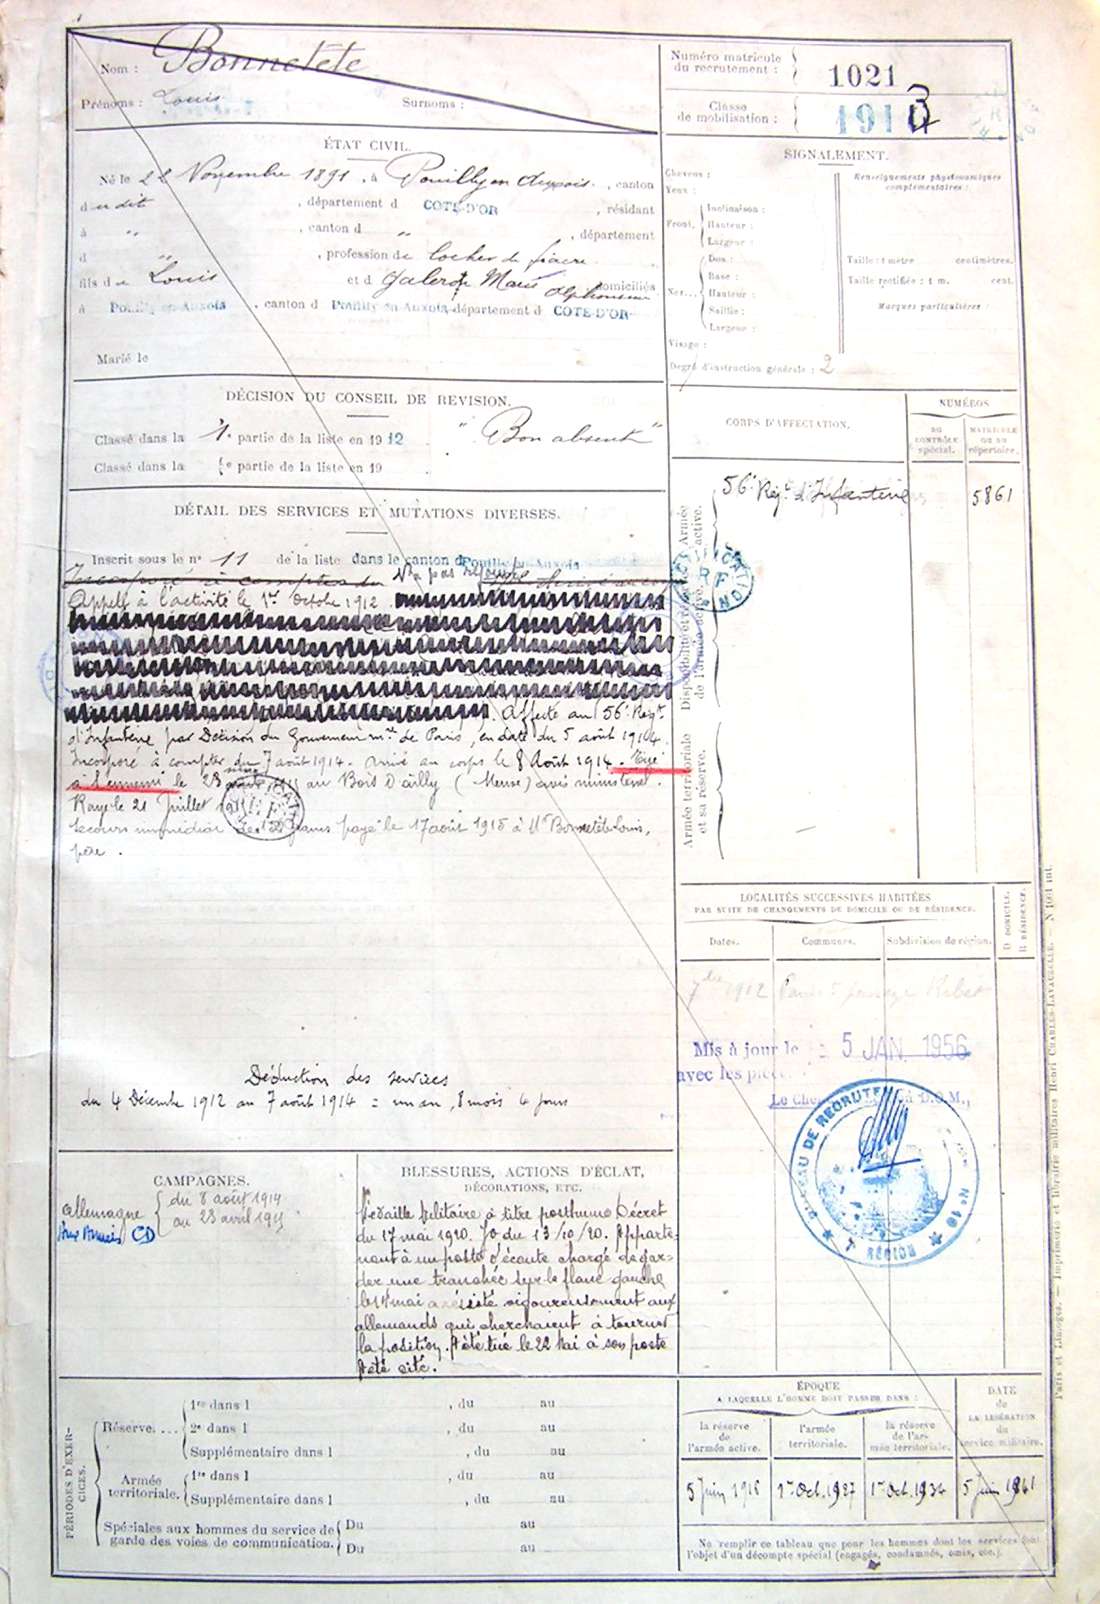 Nom : Bonnetête
Prénoms : Louis Surnoms :
Numéro matricule du recrutement : 1021
Classe de mobilisation : 1913
ÉTAT CIVIL.
Né le 22 Novembre 1891, à Pouilly en Auxois, canton
du dit, département d COTE-D'OR, résidant
à " , canton d " , département
d " , profession de Cocher de fiacre
fils de Louis et d Marie Alphonsine domiciliés
à Pouilly-en-Auxois, canton d Pouilly-en-Auxois département d COTE-D'OR
Marié le
SIGNALEMENT.
Cheveux :
Yeux :
Front, Inclinaison :
Hauteur :
Largeur :
Nez... Dos :
Base :
Hauteur :
Saillie :
Largeur :
Visage :
Renseignements physionomiques complémentaires :
Taille : 1 mètre centimètres.
Taille rectifiée : 1 m. cent.
Marques particulières :
Degré d'instruction générale : 2
DÉCISION DU CONSEIL DE REVISION.
Classé dans la 1e partie de la liste en 1912 "Bon absent"
Classé dans la e partie de la liste en 19
CORPS D'AFFECTATION.
NUMÉROS
DU CONTRÔLE spécial.
MATRICULE OU DU répertoire.
Armée active.
56e Régt d'Infanterie 5861
Disponibilité et réserve de l'armée active.
Armée territoriale et sa réserve.
DÉTAIL DES SERVICES ET MUTATIONS DIVERSES.
Inscrit sous le n° 11 de la liste dans le canton d Pouilly-en-Auxois
Incorporé à compter du N'a pas
Appelé à l'activité le 1er Octobre 1912
Affecté au 56e Régt
d'Infanterie par Décision du Gouverneur mre de Paris, en date du 5 août 1914.
Incorporé à compter du 7 août 1914. Arrivé au corps le 8 Août 1914. Tué
à l'ennemi le 23 au Bois D'ailly (Meuse) avis ministériel.
Rayé le 21 Juillet
Secours immédiat de 150 francs payé le 17 août 1915 à Mr Bonnetête Louis,
père.
Déduction des services
du 4 Décembre 1912 au 7 août 1914 = un an, 8 mois 4 jours
LOCALITÉS SUCCESSIVES HABITÉES
PAR SUITE DE CHANGEMENTS DE DOMICILE OU DE RÉSIDENCE.
Dates. Communes. Subdivision de région. D. DOMICILE. R. RÉSIDENCE.
7 1912 Paris 5 passage
Mis à jour le 5 JAN. 1956
avec les
Le D.O.M.,
BUREAU DE RECRUTEMENT
7e RÉGION
CAMPAGNES.
Allemagne du 8 août 1914
au 23 avril 1915
CD
BLESSURES, ACTIONS D'ÉCLAT,
DÉCORATIONS, ETC.
Médaille Militaire à titre posthume Décret
du 17 mai 1920. JO du 13/10/20. Apparte-
nant à un poste d'écoute chargé de gar-
der une tranchée sur le flanc gauche
le 1er mai a résisté vigoureusement aux
allemands qui cherchaient à tourner
la position. A été tué le 22 Mai à son poste
A été cité.
PÉRIODES D'EXERCICES.
Réserve.... 1re dans l , du au
2e dans l , du au
Supplémentaire dans l , du au
Armée territoriale. 1re dans l , du au
Supplémentaire dans l , du au
Spéciales aux hommes du service de garde des voies de communication. Du au
Du au
ÉPOQUE
A LAQUELLE L'HOMME DOIT PASSER DANS :
la réserve de l'armée active. l'armée territoriale. la réserve de l'armée territoriale.
DATE de LA LIBÉRATION du service militaire.
5 Juin 1916 1er Oct. 1927 1er Oct. 1934 5 Juin 1941
Ne remplir ce tableau que pour les hommes dont les services font
l'objet d'un décompte spécial (engagés, condamnés, omis, etc.).
Paris et Limoges. — Imprimerie et librairie militaires Henri CHARLES-LAVAUZELLE. — N 1001 int.